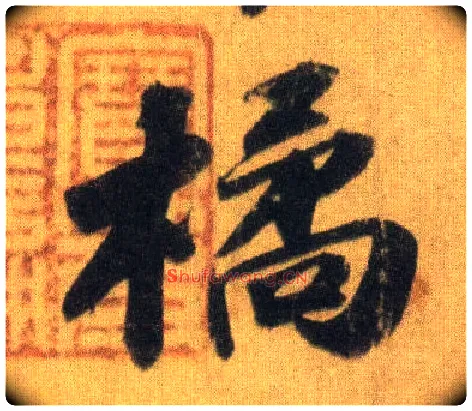 橘
Shufawang.CN